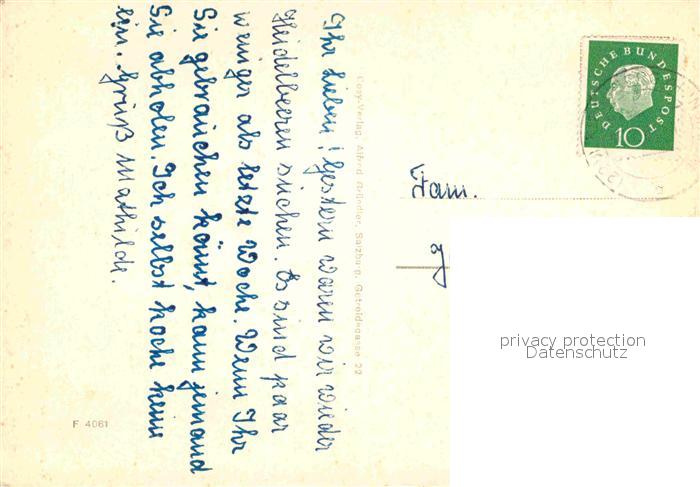 Ihr Lieben! Gestern waren wir wieder
Heidelbeeren suchen. Es sind paar
weniger als letzte Woche. Wenn Ihr
Sie gebrauchen könnt, kann jemand
Sie abholen. Ich selbst koche keine
ein. Gruß Mathilde.
Cosy-Verlag, Alfred Gründler, Salzburg, Getreidegasse 22
F 4061
DEUTSCHE BUNDESPOST
10
Fam.
privacy protection
Datenschutz